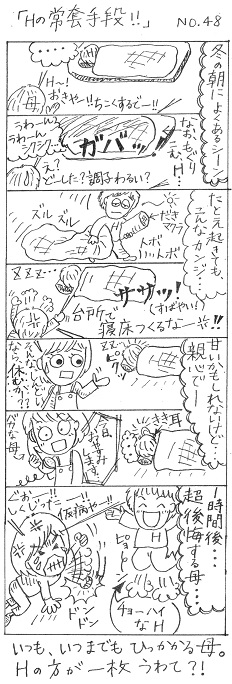 「Hの常套手段!!」 NO.48
冬の朝によくあるシーン
H〜!
おきやー!!ちこくするでー!!
母
H
ガバッ
なおもぐり
こむ、H…
うわーん
うわーん
え?
どーした?調子わるい?
たとえ起きても、
こんなカンジ…
ズル ズル
だき
マクラ
ノソボ
ZZZ…
ササッ!
(すばやい!)
台所で
寝床つくるなー!!
甘いかもしれないけど…
親心で…
ZZ…
ピクッ
そんなにしんどい
なら、休む?
がな母
今日
おやすみ
します
…き耳
1時間後…
超後悔する母…
ぐおー!!
しくじったー!!
仮病やー!!
ドン
ドン
ピョ〜
H
チョーハイ
なH
いつも、いつまでもひっかかる母。
Hの方が一枚うわて?!